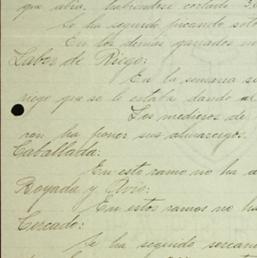 que abra, habiendose cortado
Se ha seguido picando solo
En los demás ganados no
Labor de Riego:
En la semana se
riego que se le estaba dando al
Los medieros de
ron ha poner sus almacigos.
Caballada:
En este ramo no ha
Rayada y Avio:
En estos ramos no ha
Cercado:
Se ha seguido cercando